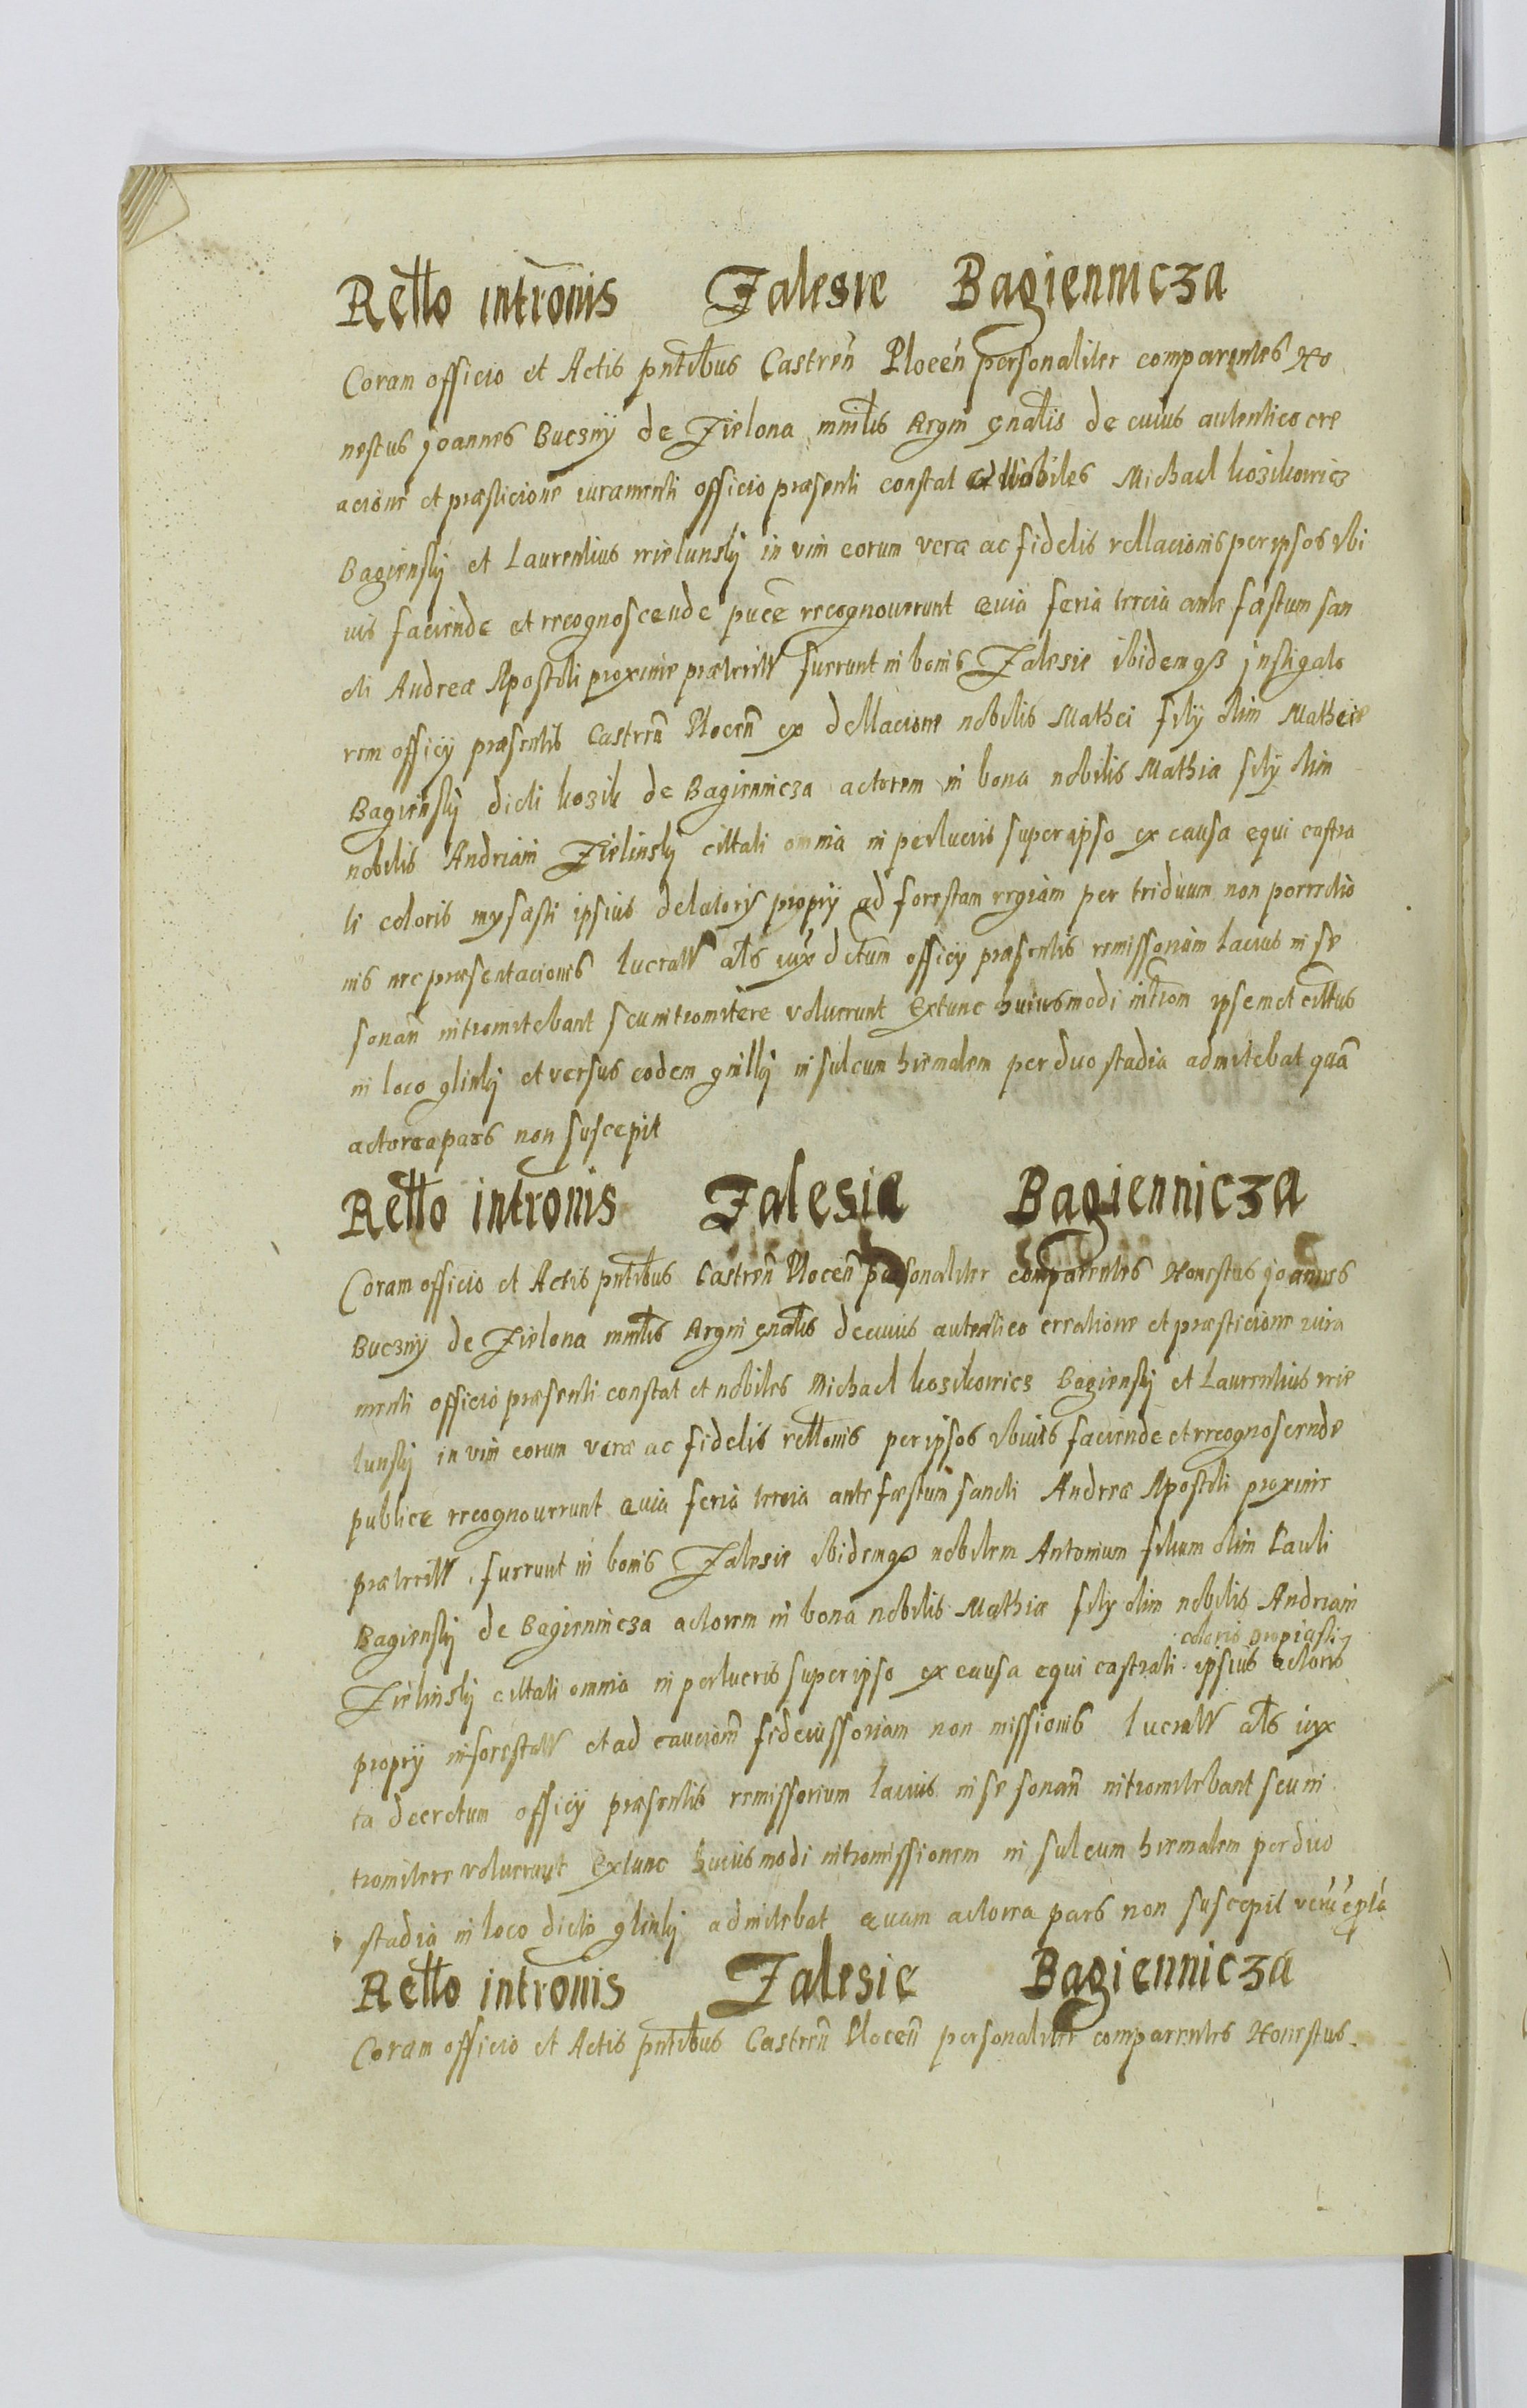 Rello intronis Zalesie Bagiennicza
Coram officio et Actis pntibus Castren Plocen personaliter comparentes Ho
nestus Joannes Buczny de Zielona mnlis Regni gnalis de cuius autentico cre
acione et præsticione iuramenti officio præsenti constat et Nobiles Michael Kozikowicz
Bagiensky et Laurentius wielunsky in vim eorum veræ ac fidelis rellacionis per ipsos ubi
uis faciende et recognoscende puce recognouerunt Quia feria tercia ante fæstum san
cti Andreæ Apostoli proxime præterit fuerunt in bonis Zalesie ibidemqз Instigato
rem officÿ præsentis Castren Plocen ex dellacione nobilis Mathei filÿ olim Mathei
Bagiensky dicti kozik de Bagiennicza actorem in bona nobilis Mathiæ filÿ olim
nobilis Andriani Zielinsky cittati omnia in perlucris super ipso ex causa equi castra
ti coloris mysasti ipsius delatoris propry ad forestam regiam per triduum non porrectio
nis nec præsentacionis lucrat als iux dctum officÿ præsentis remissorium lacius in se
sonan intromitebant seu intromitere voluerunt Extunc huiusmodi introm ipsemet cittus
in loco glinky et versus eodem gnilky in sulcum hiemalem per duo stadia admitebat quã
actorea pars non suscepit
Rello intronis Zalesie Bagiennicza
Coram officio et Actis pntibus Castren Plocen personaliter comparentes Honestus Joannes
Buczny de Zielona mnlis Regni gnalis de cuius autentico creatione et præsticione iura
menti officio præsenti constat et nobiles Michael kozikowicz Bagiensky et Laurentius wie
lunsky in vim eorum veræ ac fidelis rellonis per ipsos ubiuis faciende et recognoscende
publice recognouerunt Quia feria tercia ante fæstum sancti Andreæ Apostoli proxime
præterit fuerunt in bonis Zalesie ibidemqз nobilem Antonium filium olim Pauli
Bagiensky de Bagiennicza actorem in bona nobilis Mathiæ filÿ olim nobilis Andriani
coloris
Zielinsky cittati omnia in perlucris super ipso ex causa equi castrati ipsius actoris
propry inforestat et ad caucionem fideiussoriam non missionis lucrat als iux
ta decretum officÿ præsentis remissorium lacius in se sonan intromitebant seu in
tromitere voluerunt Extunc huiusmodi intromissionem in sulcum hiemalem per duo
stadia in loco dicto glinky admitebat quam actorea pars non suscepit
Rello intronis Zalesie Bagiennicza
Coram officio et Actis pntibus Castren Plocen personaliter comparentes Honestus